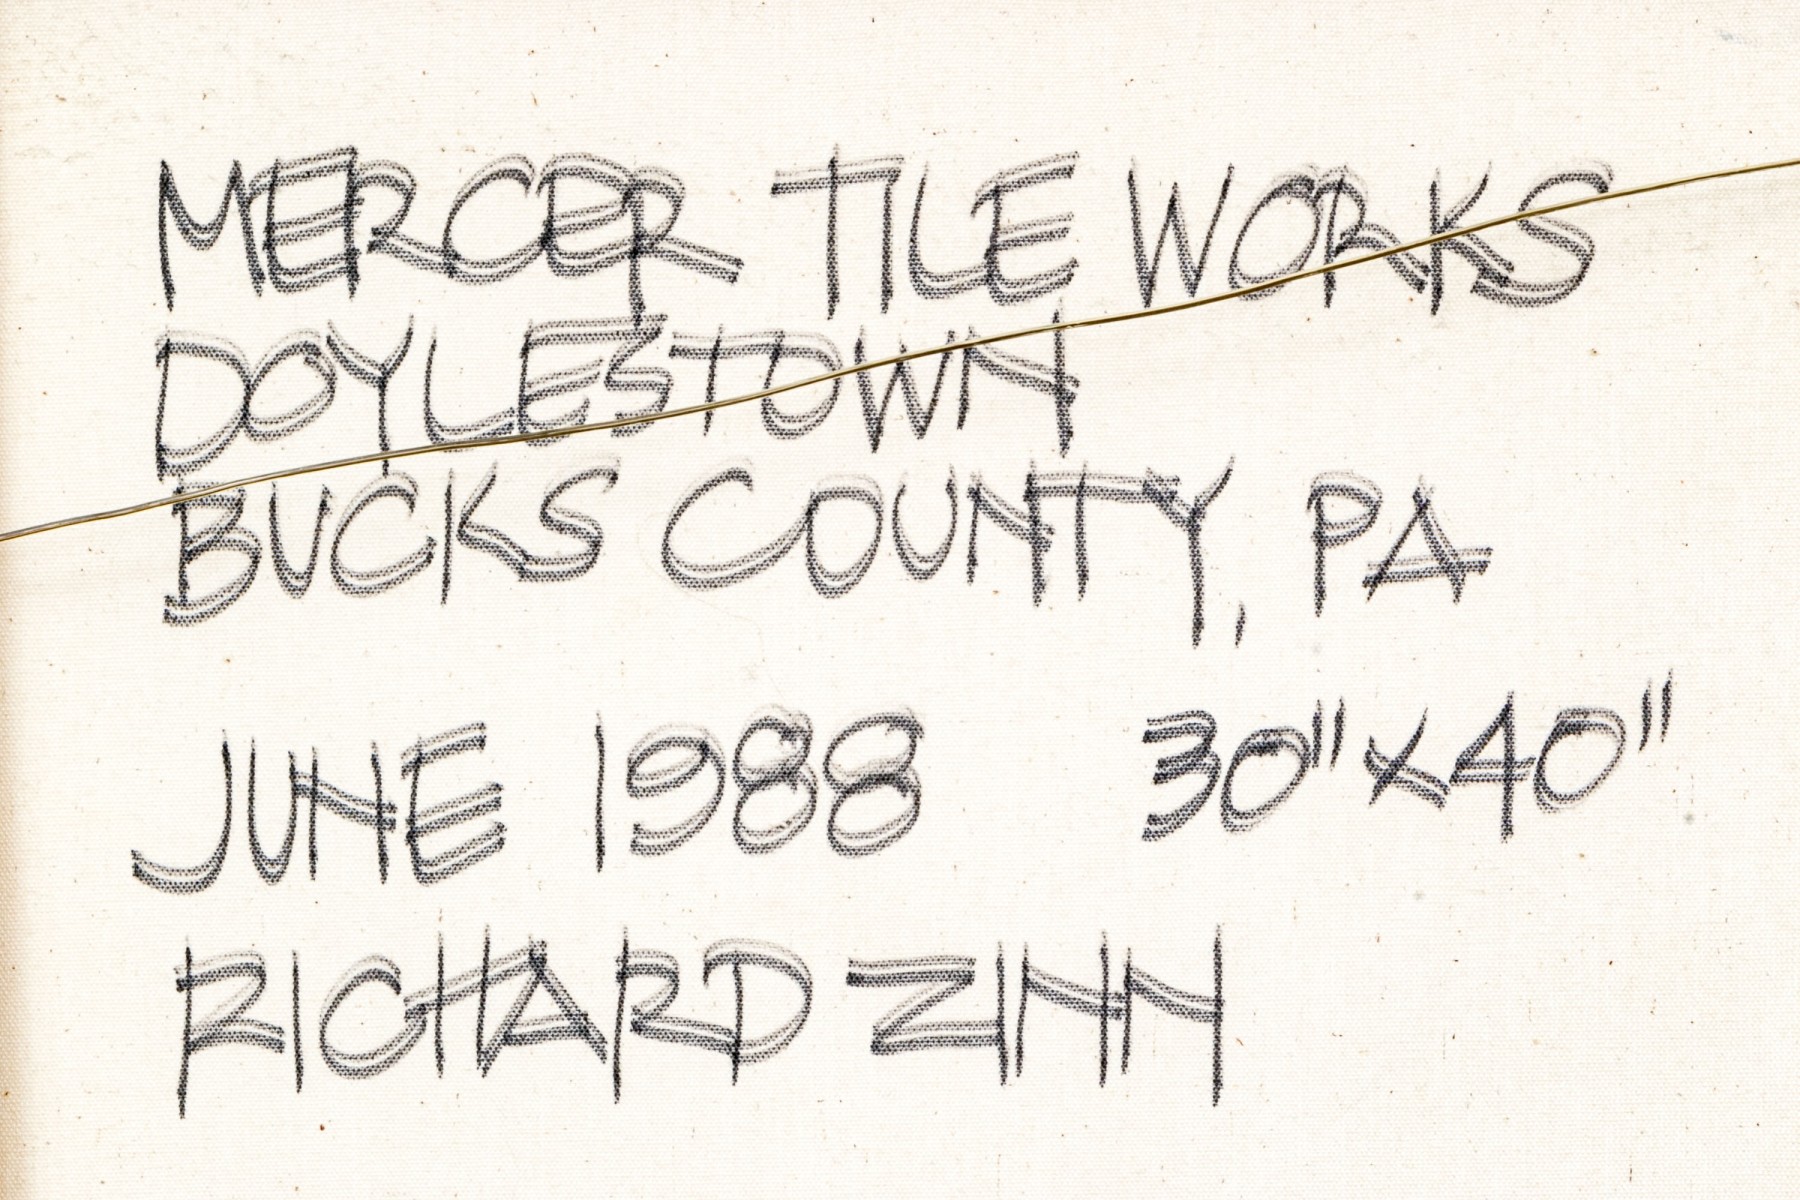 MERCER TILE WORKS
DOYLESTOWN
BUCKS COUNTY, PA
JUNE 1988 30" x 40"
RICHARD ZINN